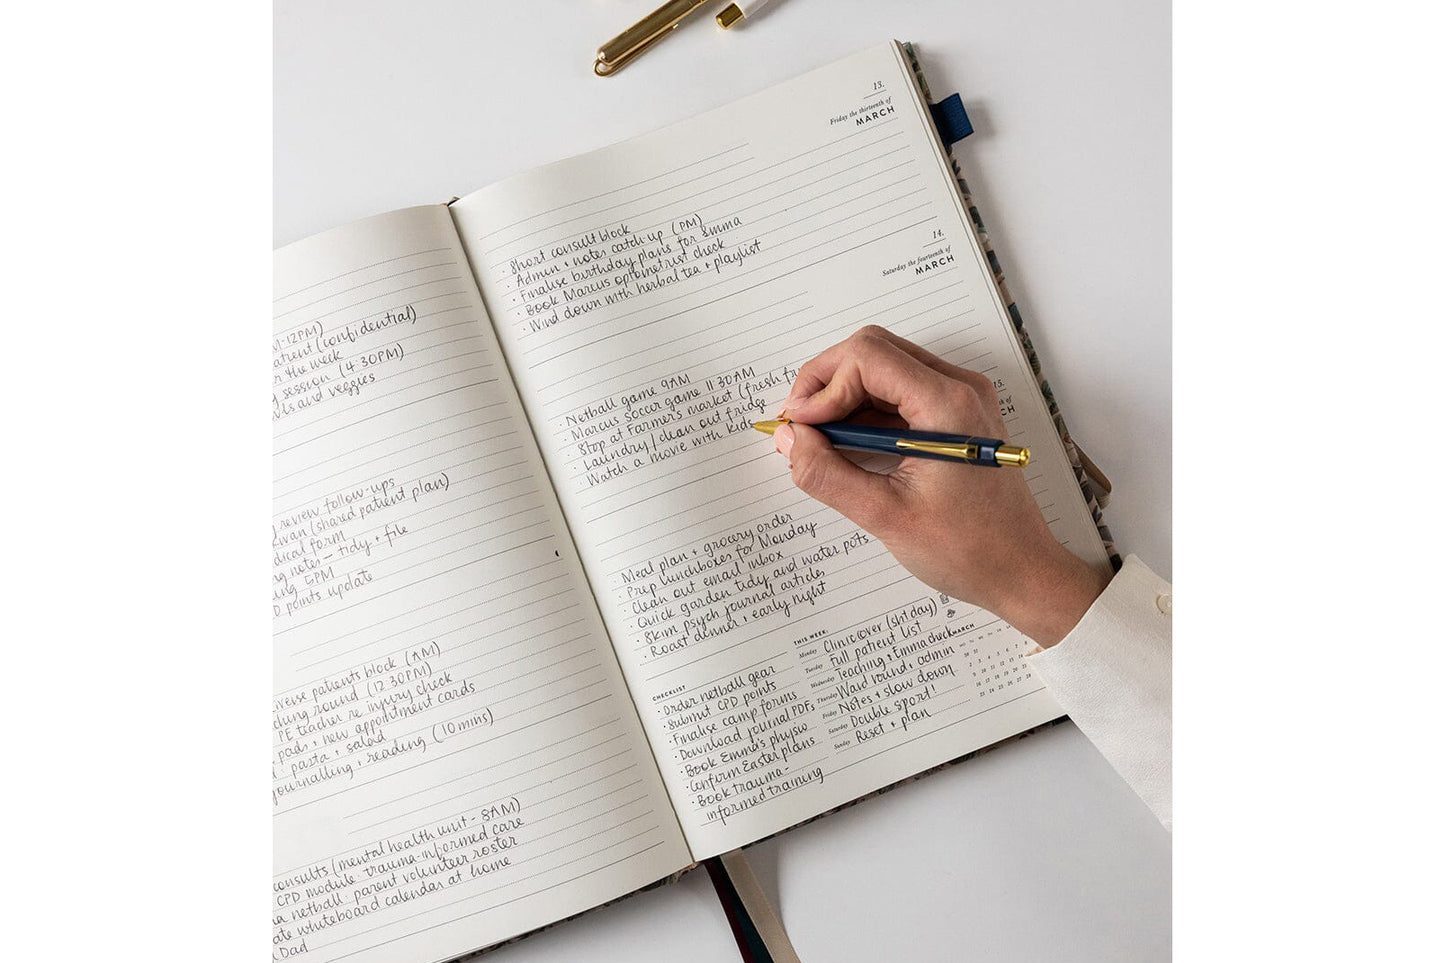 M-12PM)
atient (confidential)
r the week
g session (4 30PM)
ls and veggies
g review follow-ups
wan (shared patient plan)
dical form
ng notes - tidy + file
ing 5PM
D points update
verse patients block (AM)
ching round (12 30PM)
PE teacher re injury check
pads + new appointment cards
, pasta + salad
journalling + reading (10 mins)
consults (mental health unit - 8AM)
CPD module: trauma-informed care
a netball: parent volunteer roster
ate whiteboard calendar at home
Dad
13.
Friday the thirteenth of
MARCH
· Short consult block
· Admin + notes catch-up (PM)
· Finalise birthday plans for Emma
· Book Marcus optometrist check
· Wind down with herbal tea + playlist
14.
Saturday the fourteenth of
MARCH
· Netball game 9AM
· Marcus soccer game 11 30AM
· Stop at Farmer's market (fresh fr
· Laundry/clean out fridge
· Watch a movie with kids
15.
of
CH
· Meal plan + grocery order
· Prep lunchboxes for Monday
· Clean out email inbox
· Quick garden tidy and water pots
· Skim psych journal articles
· Roast dinner + early night
CHECKLIST
· Order netball gear
· Submit CPD points
· Finalise camp forms
· Download journal PDFs
· Book Emma's physio
· Confirm Easter plans
· Book trauma-
informed training
THIS WEEK:
Monday Clinic cover (s/nt day)
Tuesday Full patient list
Wednesday Teaching + Emma check
Thursday Ward round + admin
Friday Notes + slow down
Saturday Double sport!
Sunday Reset + plan
MARCH